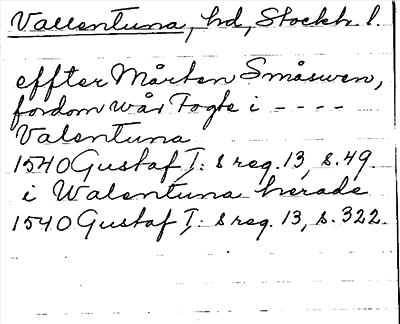 Vallentuna, hd, Stockh. l.
effter Mårten Småswen,
fordom wår Fogte i ----
Valentuna
1540 Gustaf I: s reg. 13, s. 49.
i Walentuna herade
1540 Gustaf I: s reg. 13, s. 322.